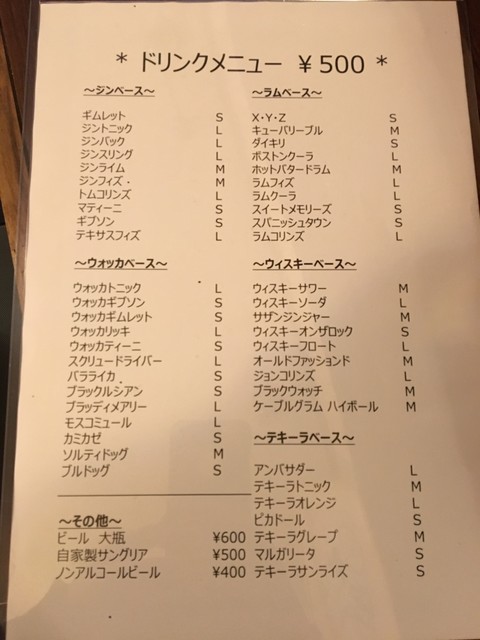 * ドリンクメニュー ￥500 *
～ジンベース～
ギムレット S
ジントニック L
ジンバック L
ジンスリング L
ジンライム M
ジンフィズ・ M
トムコリンズ L
マティーニ S
ギブソン S
テキサスフィズ L
～ラムベース～
X・Y・Z S
キューバリーブル M
ダイキリ S
ボストンクーラ L
ホットバタードラム M
ラムフィズ L
ラムクーラ L
スイートメモリーズ S
スパニッシュタウン S
ラムコリンズ L
～ウォッカベース～
ウォッカトニック L
ウォッカギブソン S
ウォッカギムレット S
ウォッカリッキ L
ウォッカティーニ S
スクリュードライバー L
バラライカ S
ブラックルシアン S
ブラッディメアリー L
モスコミュール L
カミカゼ S
ソルティドッグ M
ブルドッグ S
～ウィスキーベース～
ウィスキーサワー M
ウィスキーソーダ L
サザンジンジャー M
ウィスキーオンザロック S
ウィスキーフロート L
オールドファッションド M
ジョンコリンズ L
ブラックウォッチ M
ケーブルグラム ハイボール M
～テキーラベース～
アンバサダー L
テキーラトニック M
テキーラオレンジ L
ピカドール S
テキーラグレープ M
マルガリータ S
テキーラサンライズ S
～その他～
ビール 大瓶 ¥600
自家製サングリア ¥500
ノンアルコールビール ¥400